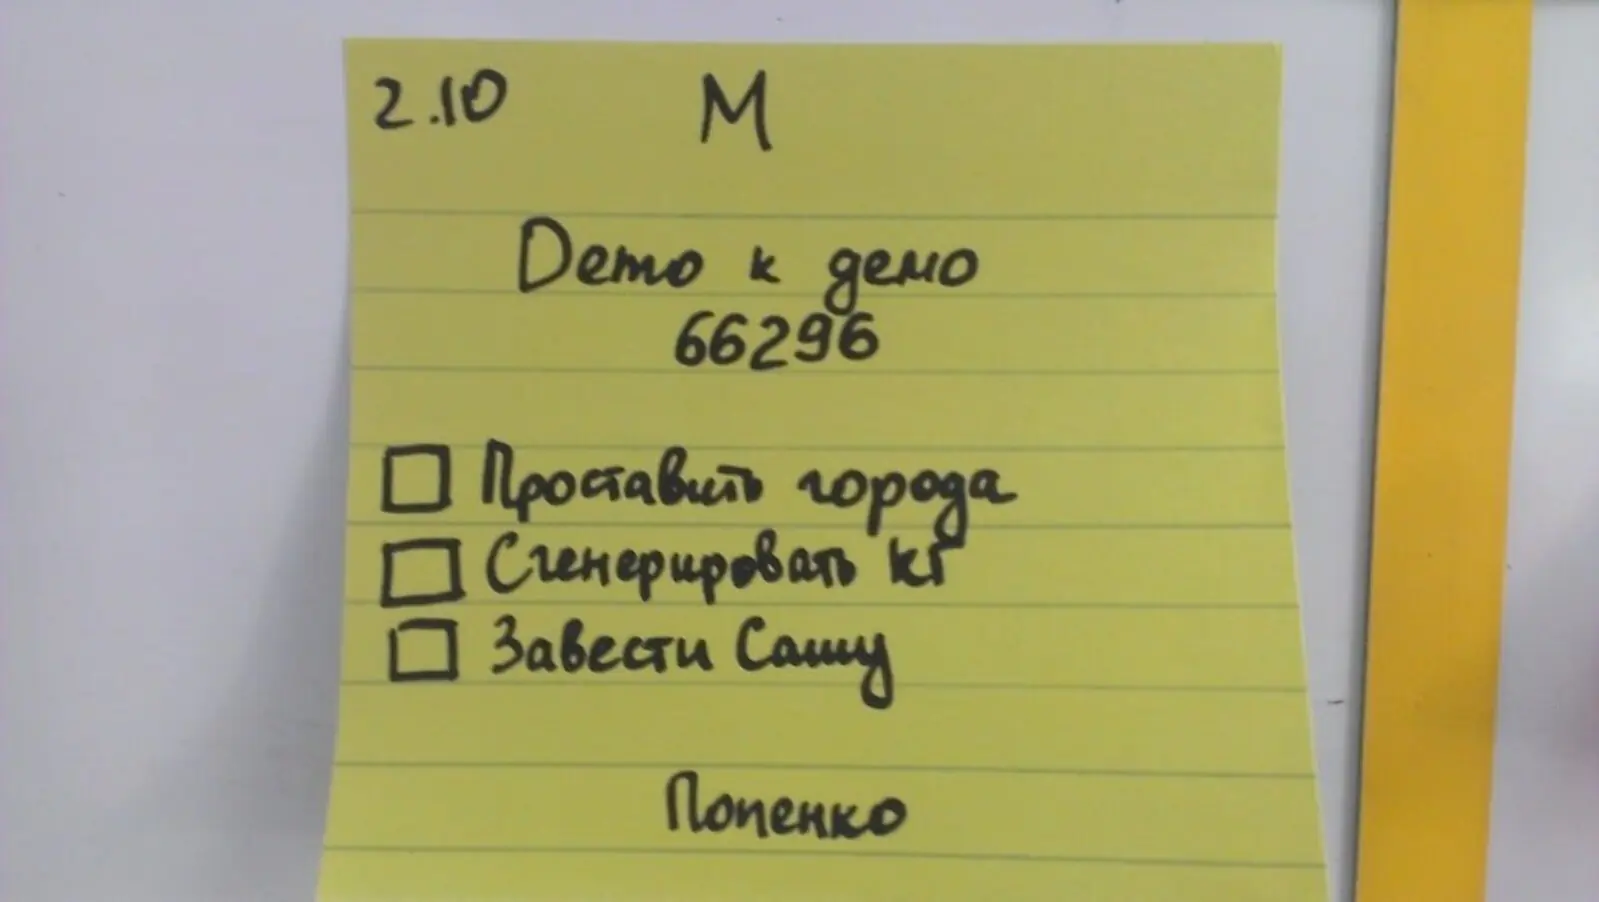 2.10 М
Demo к демо
66296
Проставить города
Сгенерировать КГ
Завести Сашу
Попенко